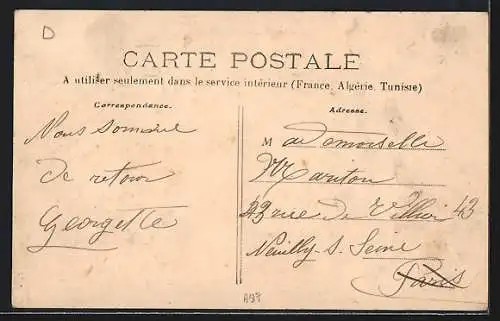 D
CARTE POSTALE
A utiliser seulement dans le service intérieur (France, Algérie, Tunisie)
Correspondance.
Nous sommes
de retour
Georgette
Adresse.
M ademoiselle
Mariton
43 rue de Villiers 43
Neuilly-s-Seine
Paris
A98